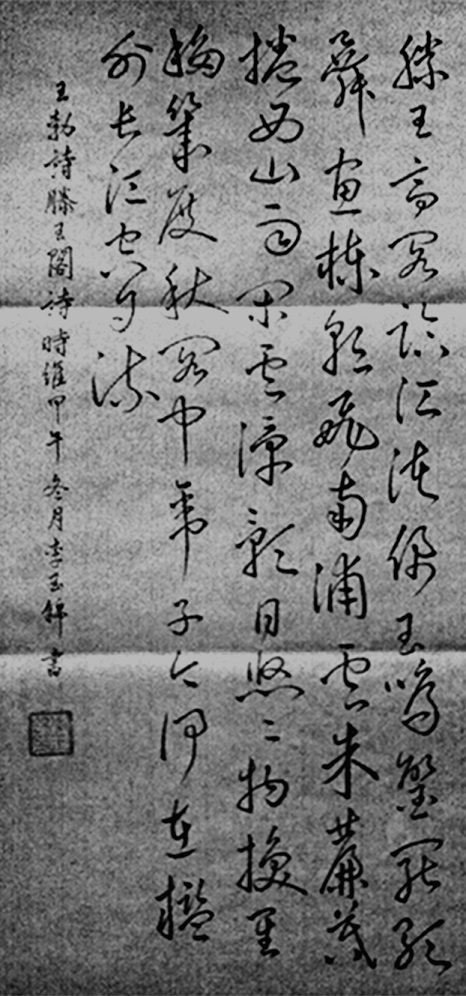 滕王高閣臨江渚佩玉鳴鑾罷歌
舞畫棟朝飛南浦雲朱簾暮
捲西山雨閒雲潭影日悠〻物換星
移幾度秋閣中帝子今何在檻
外長江空自流
王勃詩滕王閣詩時維甲午冬月李玉書